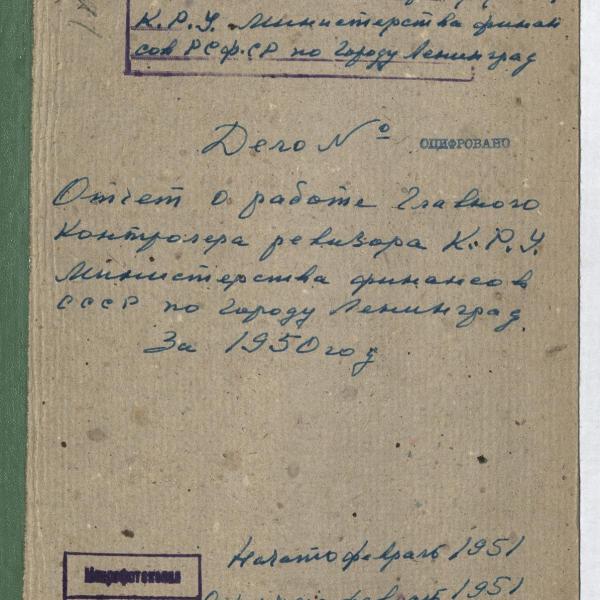 К.Р.У. Министерства финан
сов РСФСР по Городу Ленинград
Дело №
ОЦИФРОВАНО
Отчет о работе Главного
контролера ревизора К.Р.У.
Министерства финансов
СССР по Городу Ленинград.
За 1950 год
Начато февраль 1951
февраль 1951